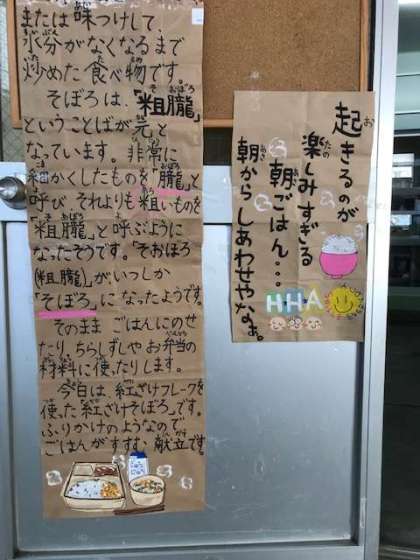 または 味つけして、
水分がなくなるまで
炒めた 食べ物です。
そぼろは、「粗朧」
ということばが 元と
なっています。非常に
細かくしたものを「朧」と
呼び、それよりも 粗いものを
「粗朧」と 呼ぶように
なったそうです。「そおぼろ
(粗朧)」がいつしか
「そぼろ」に なったようです。
そのまま ごはんにのせ
たり、ちらしずしや お弁当の
材料に 使たりします。
今日は、紅ざけフレークを
使った 紅ざけそぼろです。
ふりかけのようなので
ごはんがすすむ 献立です。
起きるのが
楽しみすぎる
朝ごはん…
朝から しあわせやなぁ。
HHA